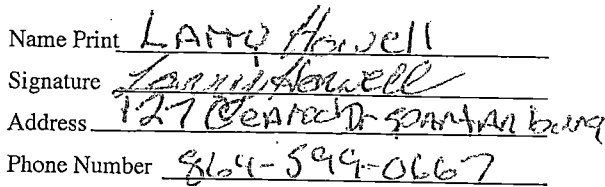 Name Print Larry Howell
Signature Larry Howell
Address 127 Dr Spartanburg
Phone Number 864-599-0667